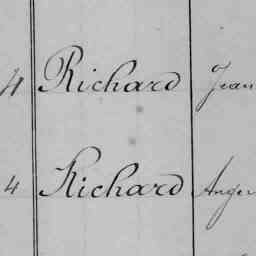 4 Richard Jean
4 Richard Ange